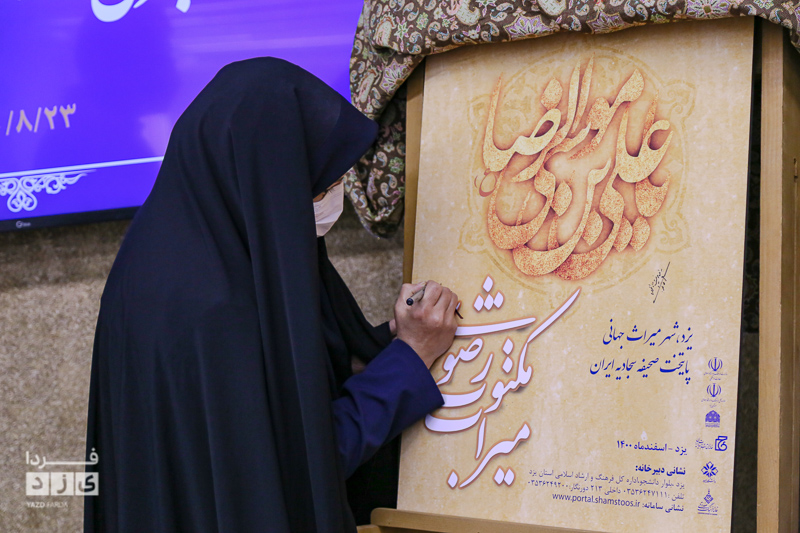 /۸/۲۳
علی بن موسی الرضا
میراث مکتوب رضوی
یزد، شهر میراث جهانی
پایتخت صحیفه سجادیه ایران
یزد - اسفندماه ۱۴۰۰
نشانی دبیرخانه:
یزد، بلوار دانشجو، اداره کل فرهنگ و ارشاد اسلامی استان یزد
تلفن: ۰۳۵۳۶۲۴۷۱۱۱ داخلی ۲۱۳ دورنگار: ۰۳۵۳۶۲۴۹۲۰۰
نشانی سامانه: www.portal.shamstoos.ir
فردا
یزد
YAZD FARDA